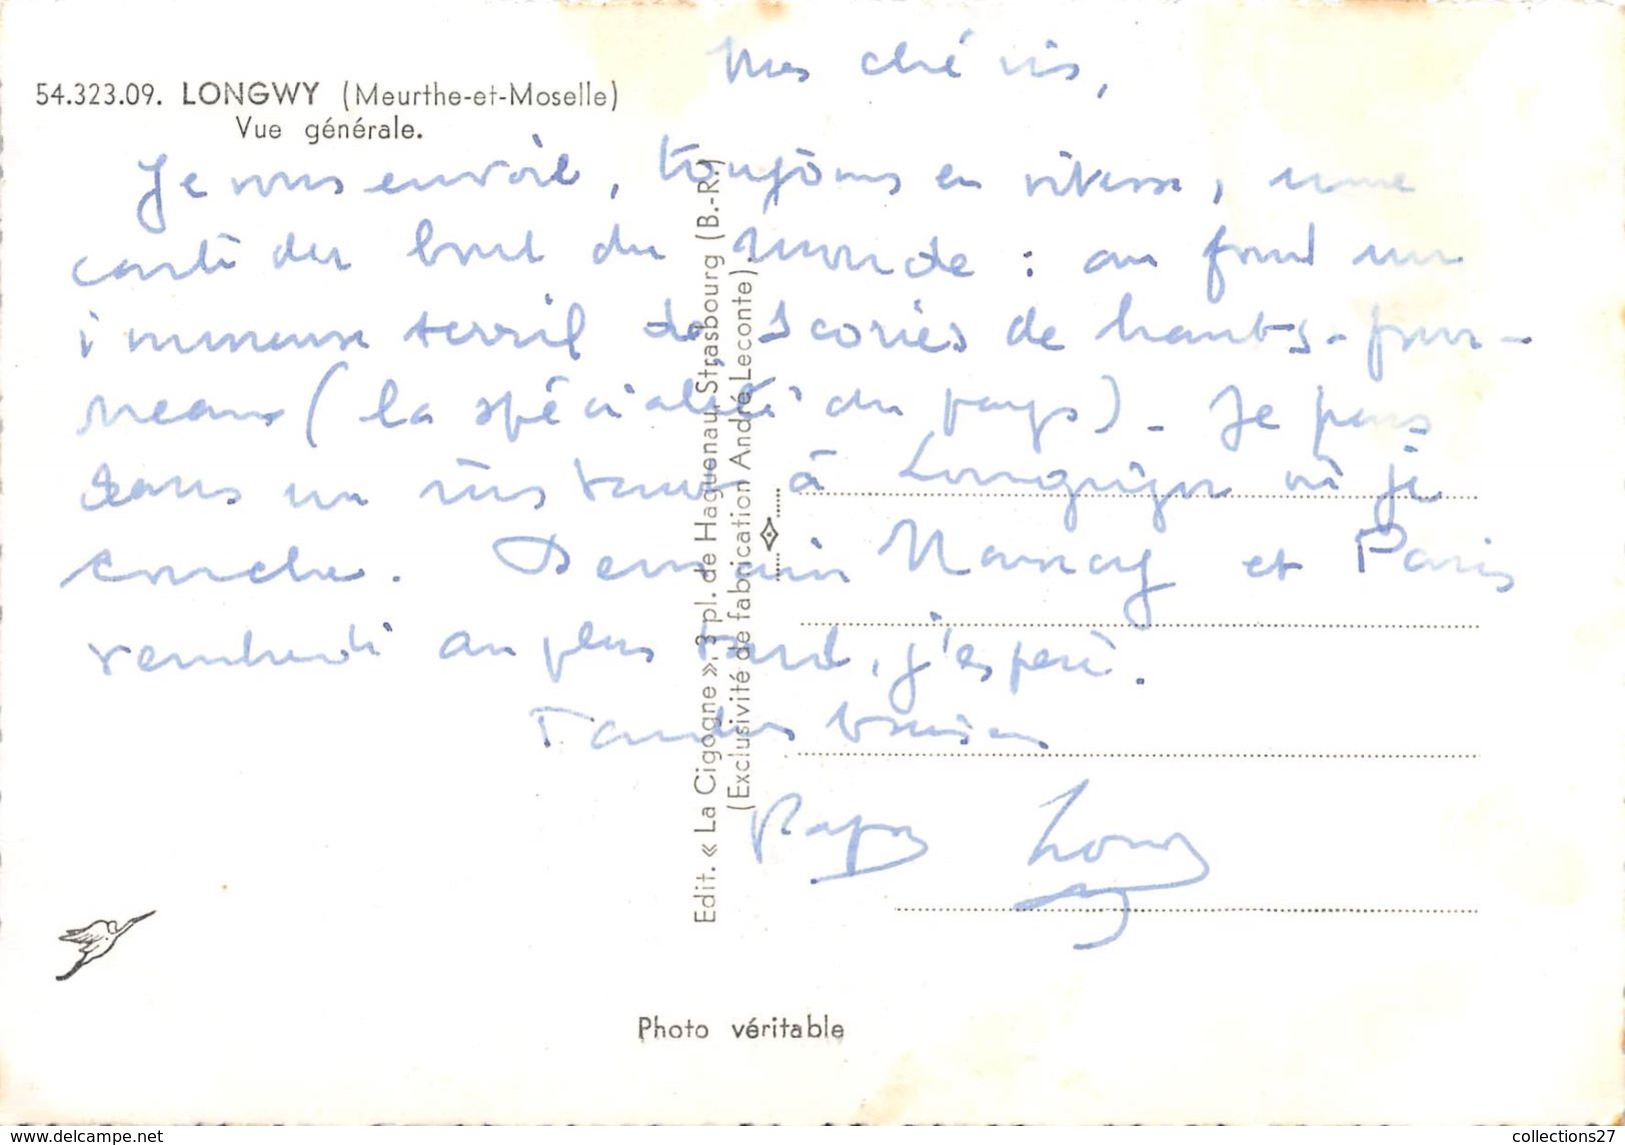 54.323.09. LONGWY (Meurthe-et-Moselle)
Vue générale.
Mes chéris,
Je vous envoie, toujours en vitesse, une
carte du bout du monde : au fond un
immense terril de scories de hauts-four-
neaux (la spécialité du pays) - Je pars
dans un instant à Longuyon où je
couche. Demain Nancy et Paris
vendredi au plus tard, j'espère.
Tendres baisers
Papa
Edit. « La Cigogne », 3 pl. de Haguenau, Strasbourg (B.-R.)
(Exclusivité de fabrication André Leconte).
Photo véritable
collections27